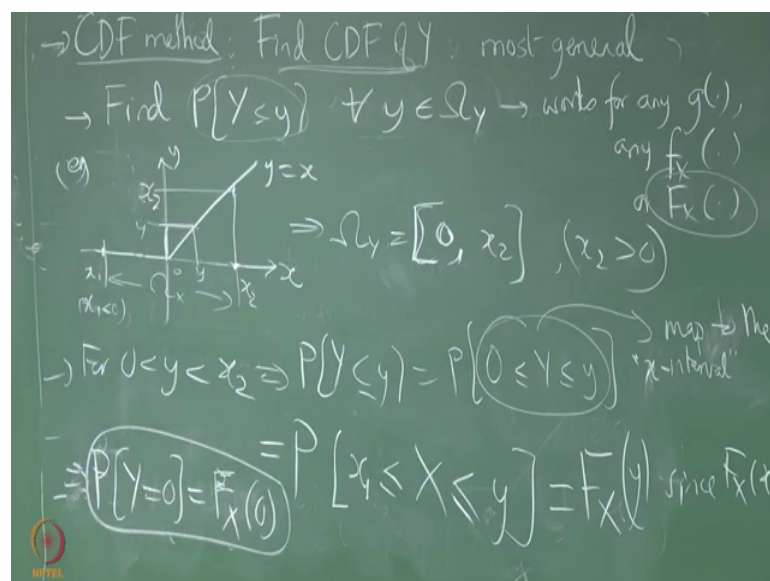 → CDF method: Find CDF of Y: most general
→ Find P[Y ≤ y] ∀ y ∈ Ω_Y → works for any g(.),
any f_X(.)
or F_X(.)
(eg)
y
y = x
x_2
y
x_1
0
y
x_2
x
Ω_X
(x_1<0)
⇒ Ω_Y = [0, x_2], (x_2 > 0)
→ For 0 < y < x_2 ⇒ P[Y ≤ y) = P[0 ≤ Y ≤ y] → map to the
"x-interval"
= P[x_1 ≤ X ≤ y] = F_X(y) since F_X(
⇒ P[Y=0] = F_X(0)
NPTEL